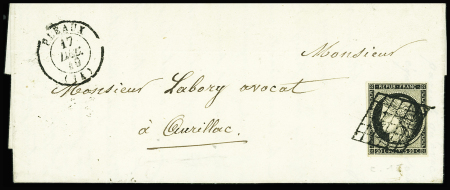 PLEAUX
17
DEC.
49
(14)
Monsieur
Monsieur Labory avocat
à Aurillac.
REPUB. FRANC.
20 c. 20 c.